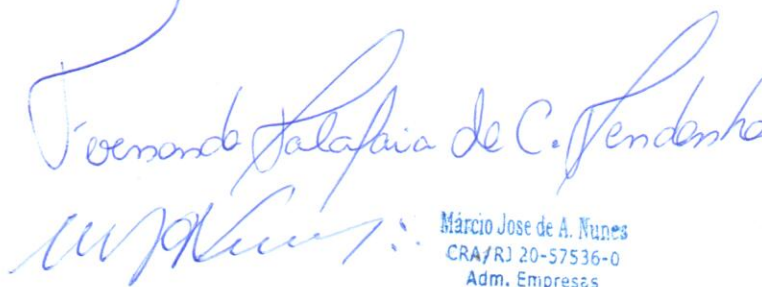 Fernanda Salafaia de C. Pendanha
Márcio Jose de A. Nunes
CRA/RJ 20-57536-0
Adm. Empresas